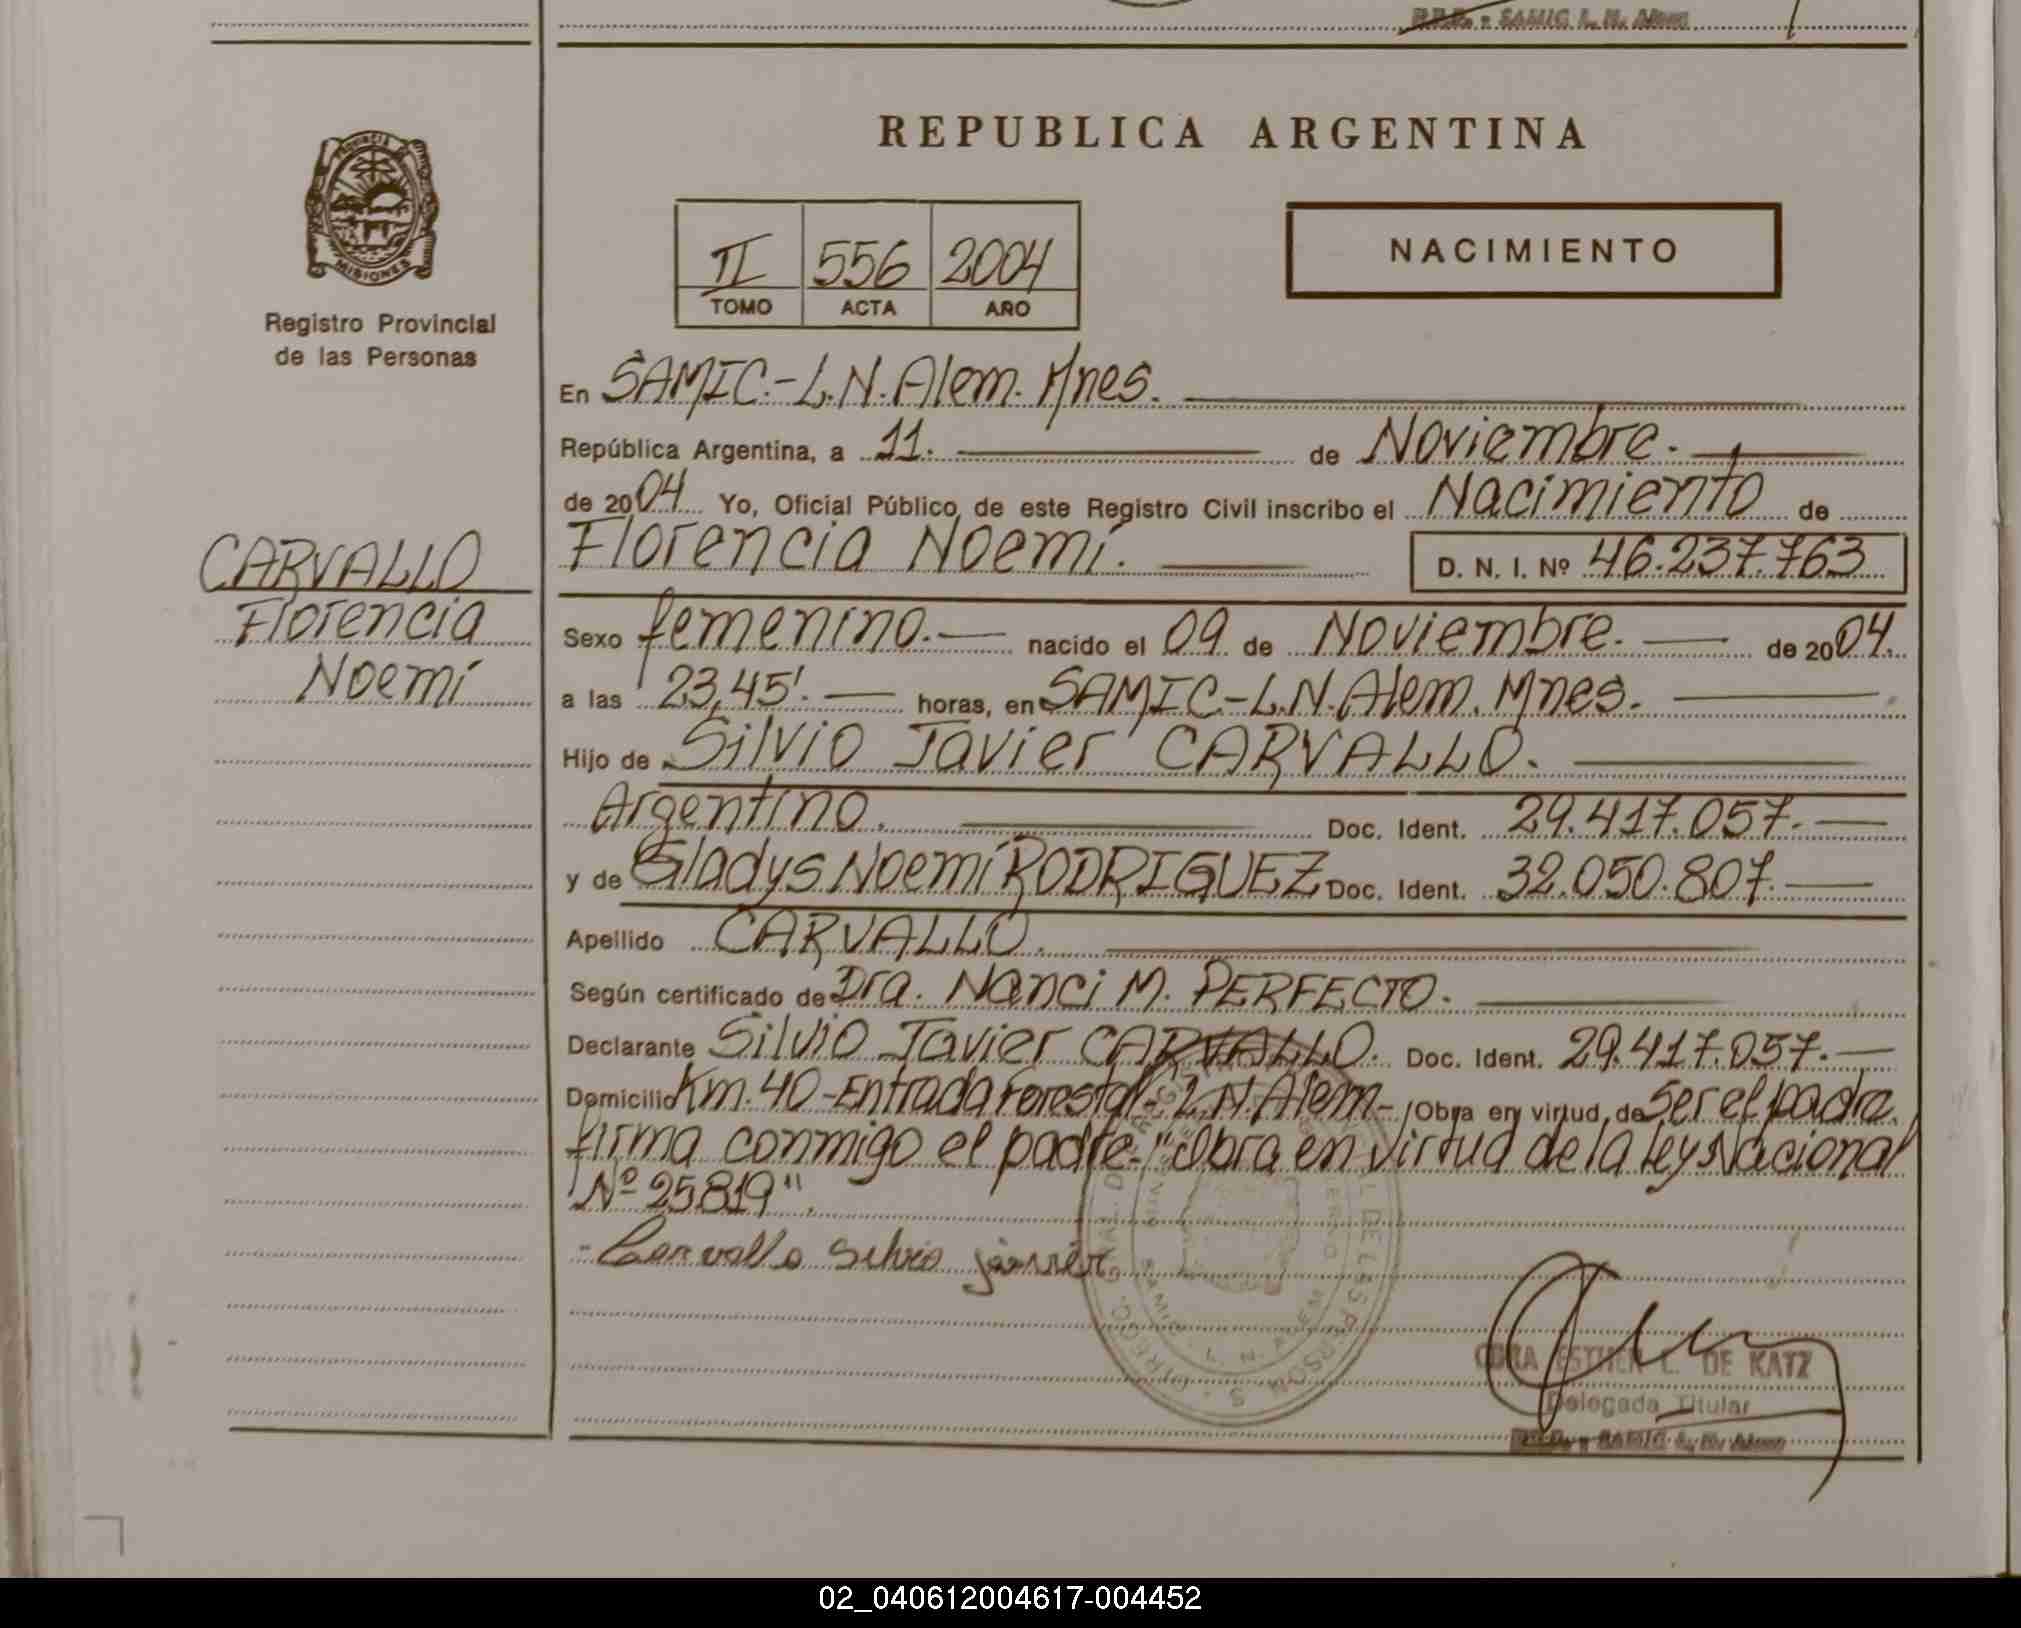 R.P.P. - SAMIC L. N. Alem
REPUBLICA ARGENTINA
PROVINCIA DE
MISIONES
Registro Provincial
de las Personas
II 556 2004
TOMO ACTA AÑO
NACIMIENTO
En SAMIC.-L.N.Alem. Mnes.
República Argentina, a 11. de Noviembre.
de 2004 Yo, Oficial Público de este Registro Civil inscribo el Nacimiento de
Florencia Noemí. D. N. I. Nº 46.237.763
CARVALLO
Florencia
Noemí
Sexo femenino.- nacido el 09 de Noviembre. de 2004.
a las 23,45'. horas, en SAMIC-L.N.Alem. Mnes.
Hijo de Silvio Javier CARVALLO.
Argentino. Doc. Ident. 29.417.057.
y de Gladys Noemí RODRIGUEZ Doc. Ident. 32.050.807.
Apellido CARVALLO.
Según certificado de Dra. Nanci M. PERFECTO.
Declarante Silvio Javier CARVALLO. Doc. Ident. 29.417.057.
Domicilio Km. 40-Entrada Forestal-L.N.Alem- Obra en virtud de Ser el padre.
firma conmigo el padre.-"Obra en virtud de la Ley Nacional
Nº 25819".
- Carvallo Silvio javier
L. N. ALEM
ESTHER L. DE KATZ
Delegada Titular
R.P.P. - SAMIC L. N. Alem
02_040612004617-004452